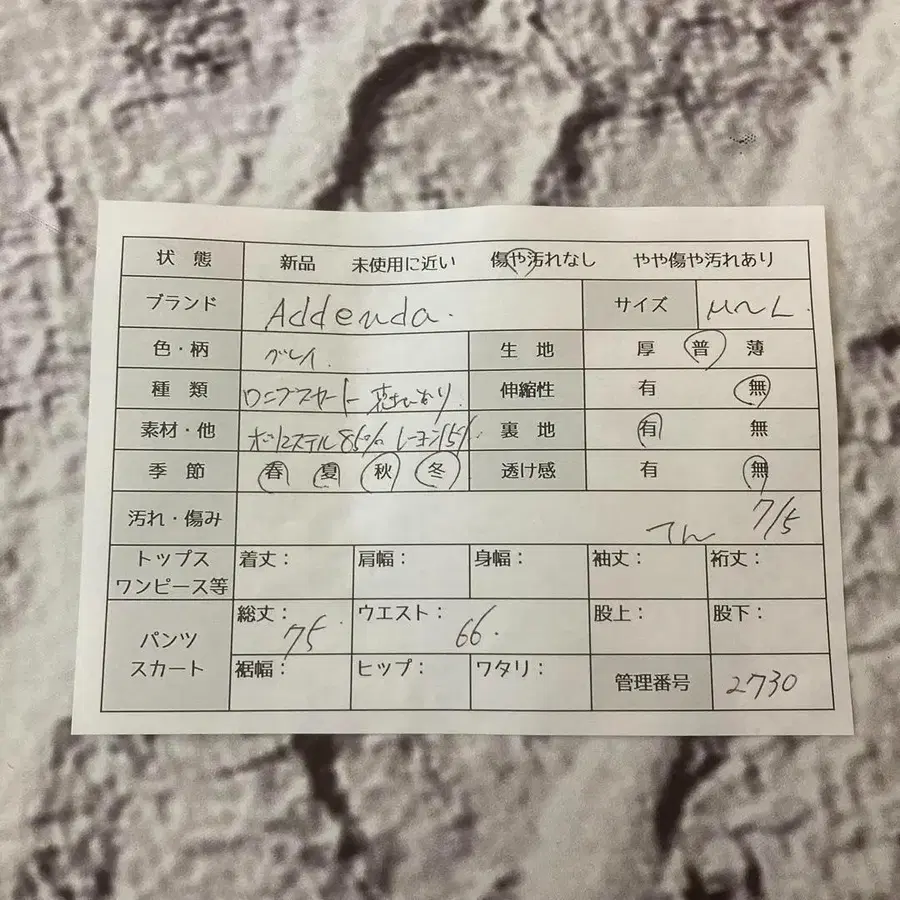 状態 新品 未使用に近い 傷や汚れなし やや傷や汚れあり
ブランド Addenda. サイズ M～L.
色・柄 グレイ. 生地 厚 普 薄
種類 ロングスカート 伸縮性 有 無
素材・他 ポリエステル85% レーヨン15% 裏地 有 無
季節 春 夏 秋 冬 透け感 有 無
汚れ・傷み てん 7/5
トップス ワンピース等 着丈： 肩幅： 身幅： 袖丈： 裄丈：
パンツ スカート 総丈： 75. ウエスト： 66. 股上： 股下：
裾幅： ヒップ： ワタリ： 管理番号 2730